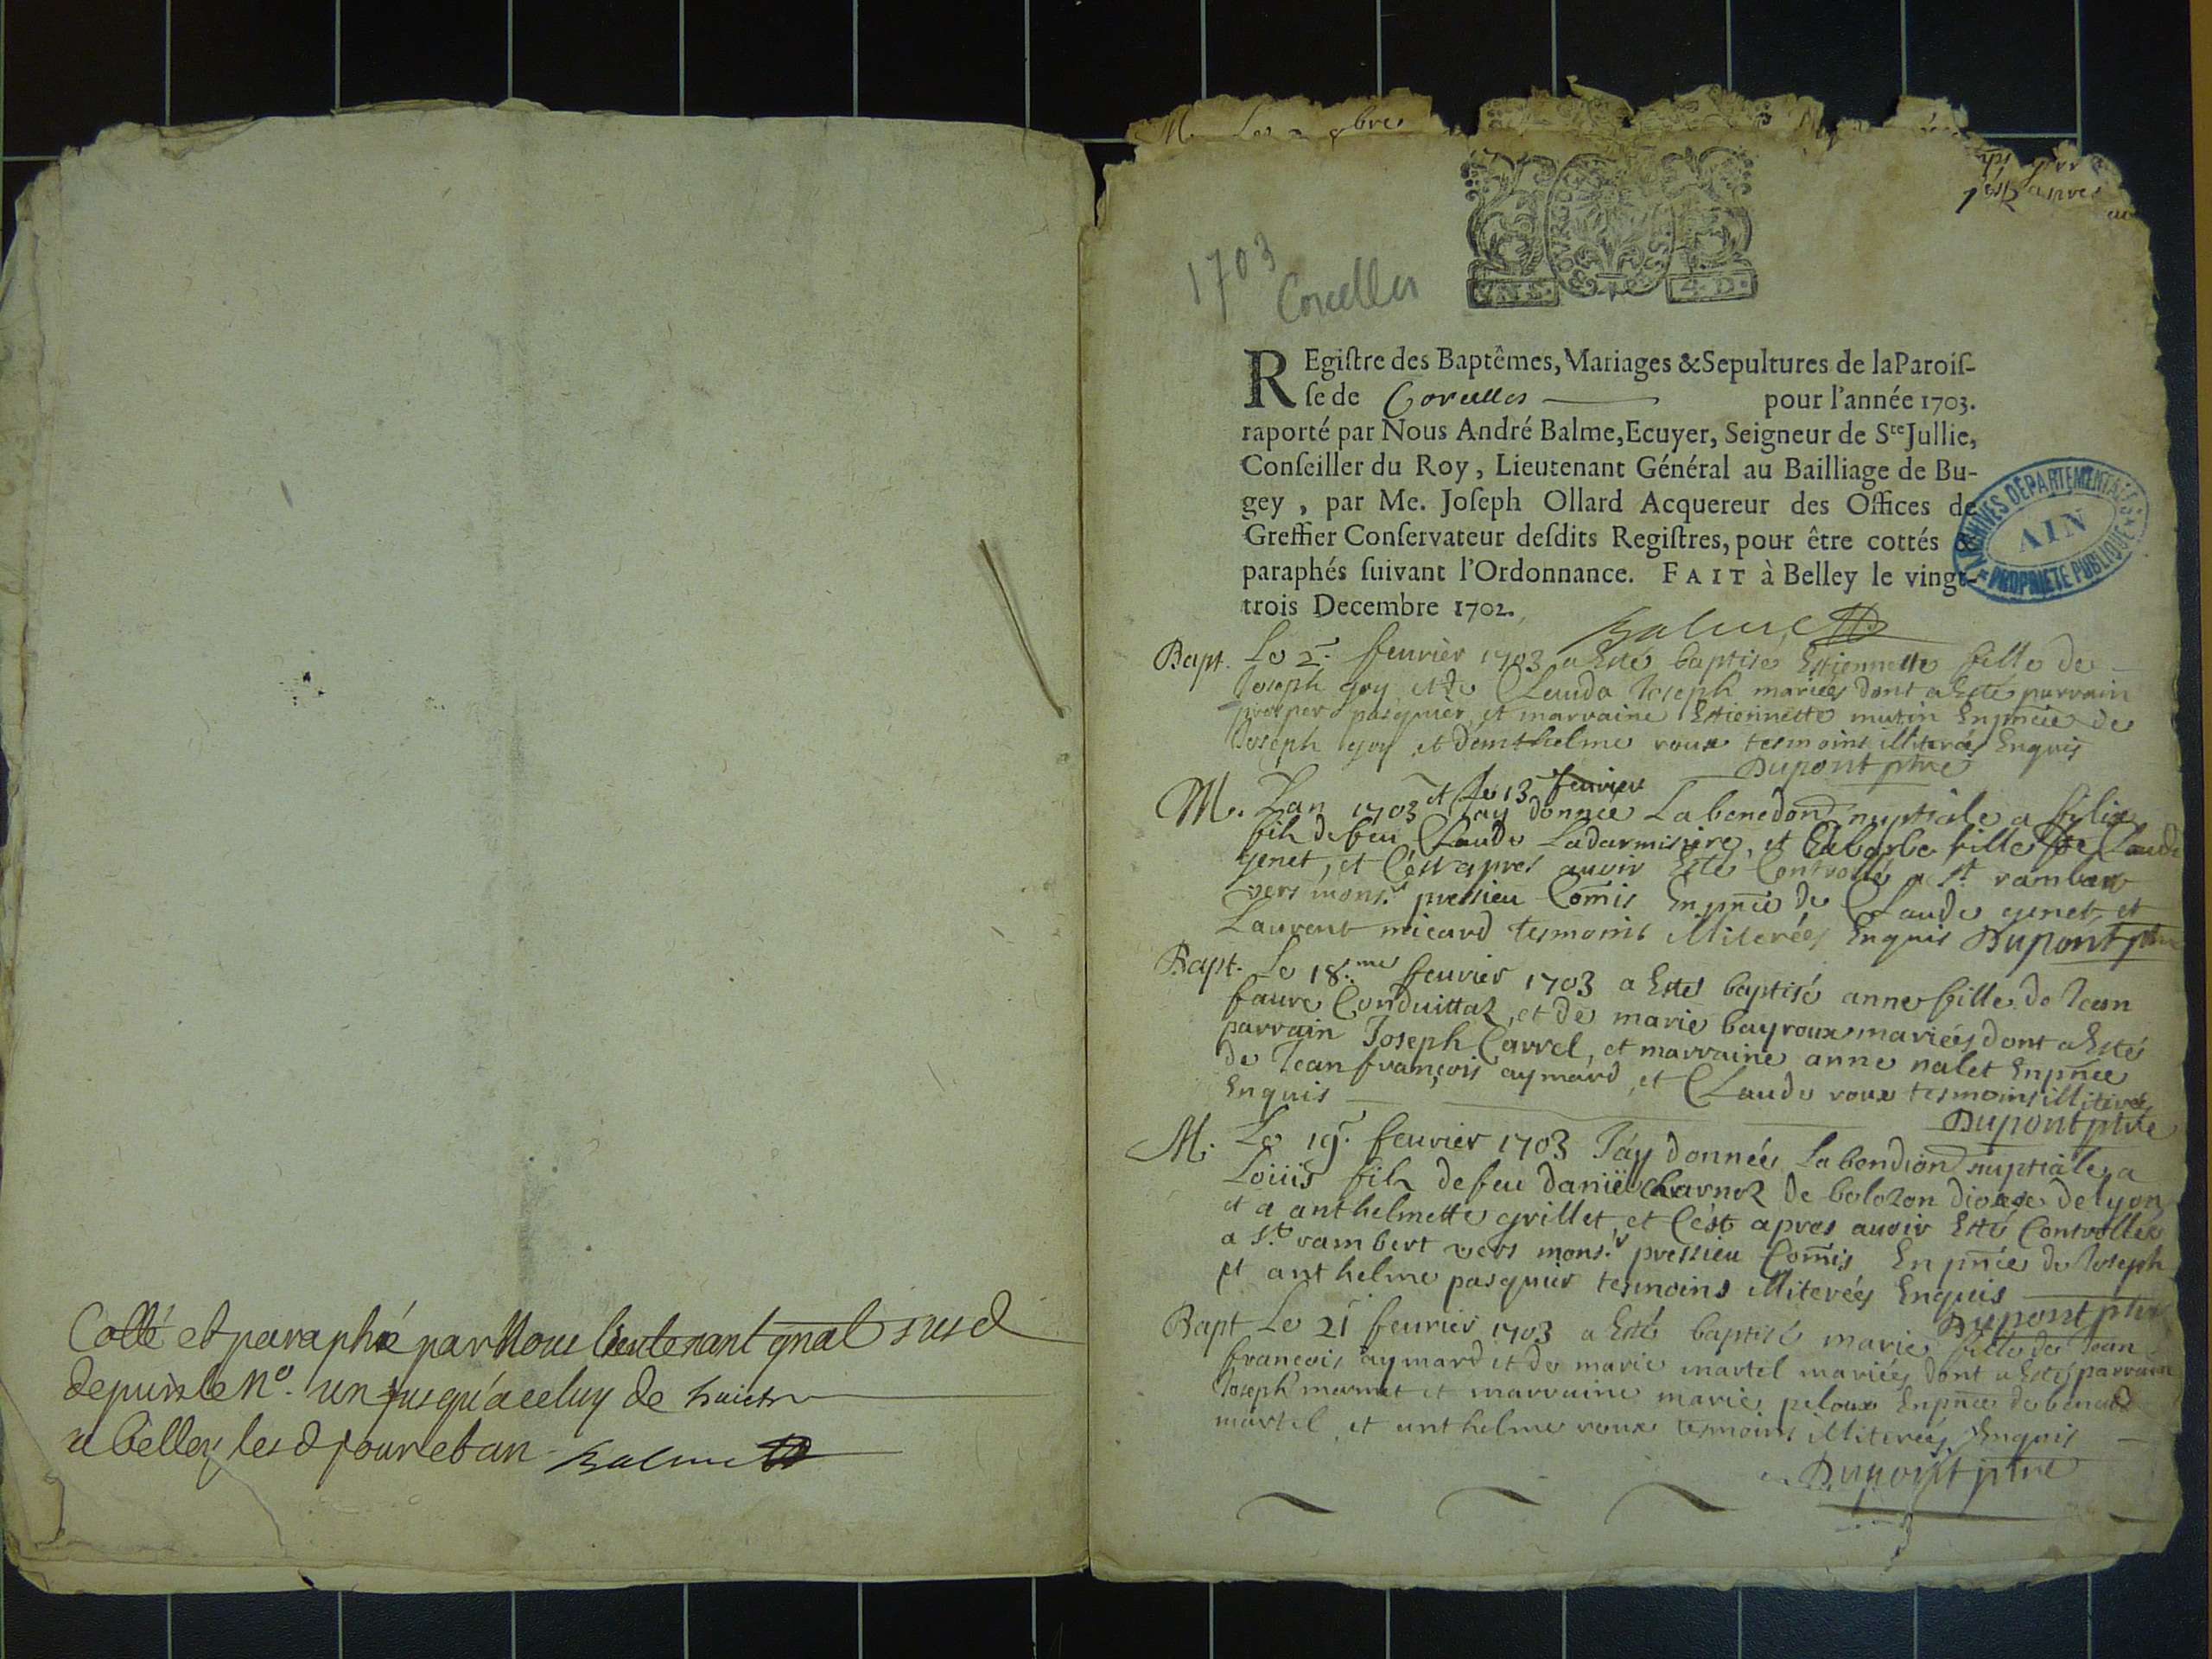 Cotté et paraphé par Nous lieutenant gnal susd
depuis le No. un jusqu'a celuy de huict
a belley lesd jour et an Balme
M. Les bre
1703
Corcelles
4. D.
REgiſtre des Baptêmes, Mariages & Sepultures de la Paroiſ-
ſe de Corcelles pour l'année 1703.
raporté par Nous André Balme, Ecuyer, Seigneur de Ste Jullie,
Conſeiller du Roy, Lieutenant Général au Bailliage de Bu-
gey, par Me. Joſeph Ollard Acquereur des Offices de
Greffier Conſervateur deſdits Regiſtres, pour être cottés &
paraphés ſuivant l'Ordonnance. FAIT à Belley le vingt-
trois Decembre 1702.
ARCHIVES DÉPARTEMENTALES
AIN
PROPRIETE PUBLIQUE
Balme
Bapt. Le 2. feurier 1703 a Esté baptisé Estiennette fille de
Joseph goy et de Clauda Joseph mariés dont a Esté parrain
prosper pasquier et marraine Estiennette mutin En pñcie de
Joseph goy et d'anthelme roux tesmoins illiterés Enquis
Dupont ptre
M. Lan 1703 et le 13 feurier Jay donnée La benedon nuptiale a felix
fils de feu Claude Ladarmisiere, et fille de Claude
genet, et C'est apres auoir Esté Controllé a St rambert
vers mons.r pressieu Com̃is En pñce de Claude genet et
Laurent micard tesmoins illiterées Enquis Dupont ptre
Bapt. Le 18.me feurier 1703 a Esté baptisé anne fille de Jean
faure Conduittaz, et de marie bayroux mariés dont a Esté
parrain Joseph Carrel, et marraine anne nalet En pñce
de Jean françois aymard, et Claude roux tesmoins illiterés
Enquis
Dupont ptre
M. Le 19. feurier 1703 J'ay donnée La bendion nuptiale a
Loüis fils de feu daniel charnoz de bolozon diocese de lyon
et a anthelmette grillet, et C'est apres auoir Esté Controllée
a St rambert vers mons.r pressieu Com̃is En pñce de Joseph
et anthelme pasquier tesmoins illiterées Enquis
Dupont ptre
Bapt Le 21 feurier 1703 a Esté baptisé marie fille de Jean
françois aymard et de marie martel mariés dont a Esté parrain
Joseph marmet et marraine marie peloux En pñce de benoist
martel, et anthelme roux tesmoins illiterés Enquis
Dupont ptre